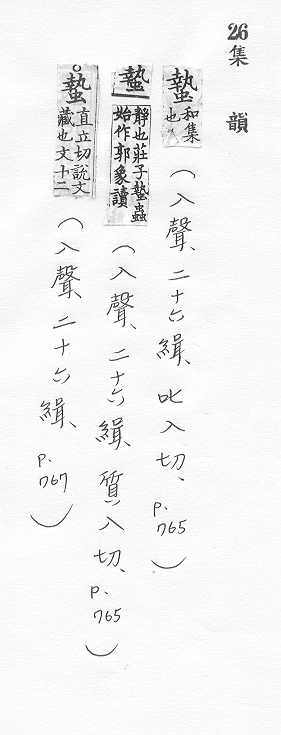 26集韻
蟄和集也(入聲、二十六緝、叱入切、p.765)
蟄靜也莊子蟄蟲始作郭象讀(入聲、二十六緝、質入切、p.765)
蟄直立切說文藏也文十二(入聲、二十六緝、p.767)